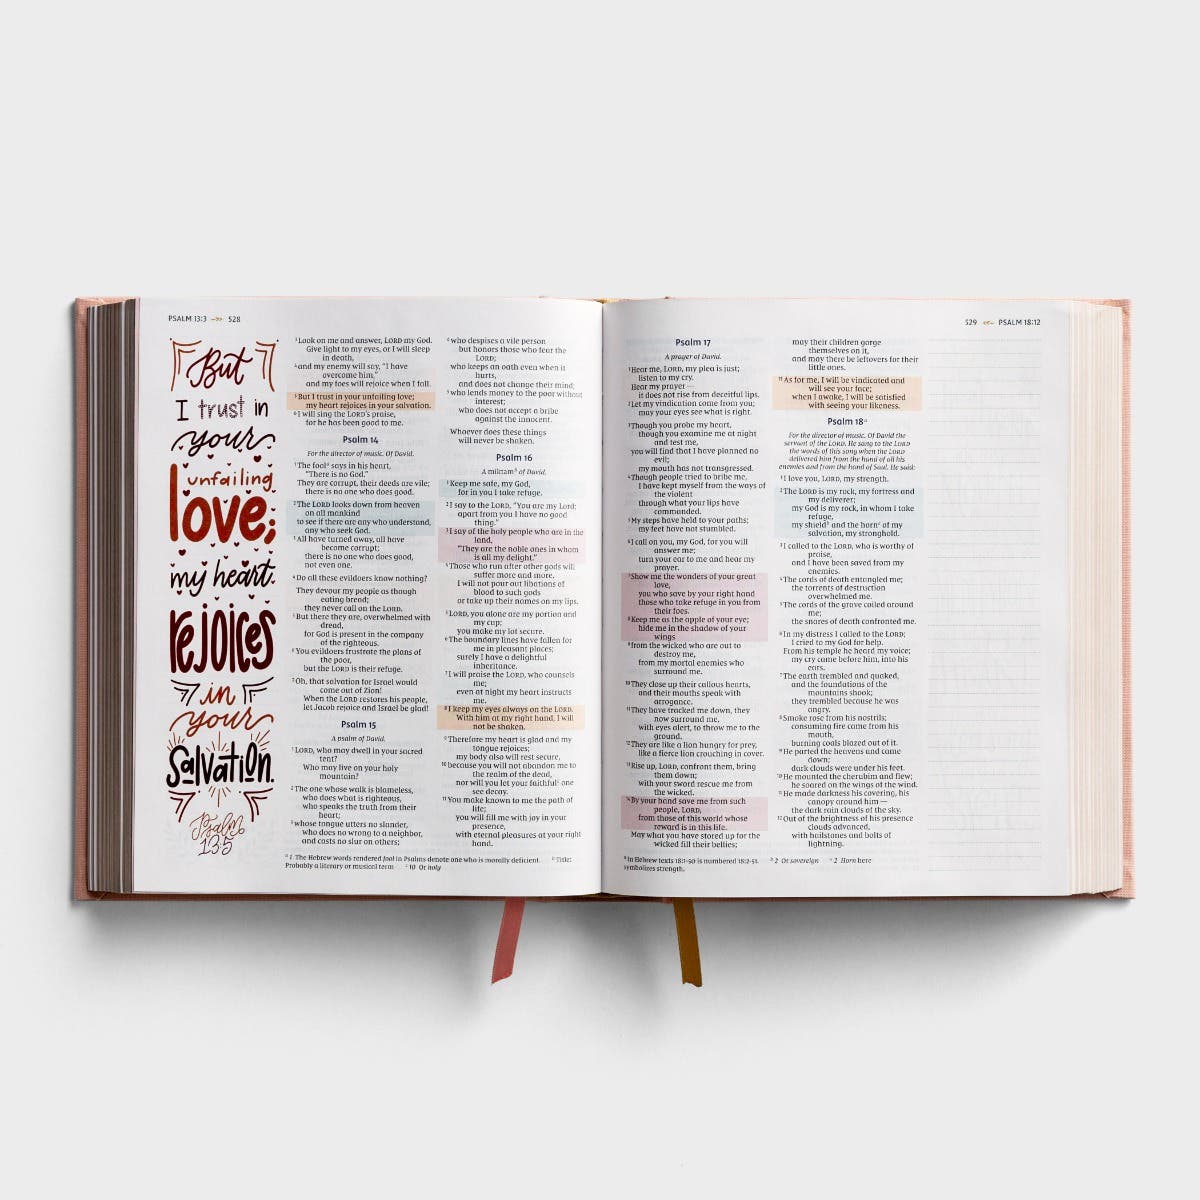 PSALM 13:3 528
But
I trust in
your
unfailing
love;
my heart
rejoices
in
your
Salvation.
Psalm
13:5
3 Look on me and answer, LORD my God.
Give light to my eyes, or I will sleep
in death,
4 and my enemy will say, "I have
overcome him,"
and my foes will rejoice when I fall.
5 But I trust in your unfailing love;
my heart rejoices in your salvation.
6 I will sing the LORD's praise,
for he has been good to me.
Psalm 14
For the director of music. Of David.
1 The fool a says in his heart,
"There is no God."
They are corrupt, their deeds are vile;
there is no one who does good.
2 The LORD looks down from heaven
on all mankind
to see if there are any who understand,
any who seek God.
3 All have turned away, all have
become corrupt;
there is no one who does good,
not even one.
4 Do all these evildoers know nothing?
They devour my people as though
eating bread;
they never call on the LORD.
5 But there they are, overwhelmed with
dread,
for God is present in the company
of the righteous.
6 You evildoers frustrate the plans of
the poor,
but the LORD is their refuge.
7 Oh, that salvation for Israel would
come out of Zion!
When the LORD restores his people,
let Jacob rejoice and Israel be glad!
Psalm 15
A psalm of David.
1 LORD, who may dwell in your sacred
tent?
Who may live on your holy
mountain?
2 The one whose walk is blameless,
who does what is righteous,
who speaks the truth from their
heart;
3 whose tongue utters no slander,
who does no wrong to a neighbor,
and casts no slur on others;
4 who despises a vile person
but honors those who fear the
LORD;
who keeps an oath even when it
hurts,
and does not change their mind;
5 who lends money to the poor without
interest;
who does not accept a bribe
against the innocent.
Whoever does these things
will never be shaken.
Psalm 16
A miktam b of David.
1 Keep me safe, my God,
for in you I take refuge.
2 I say to the LORD, "You are my Lord;
apart from you I have no good
thing."
3 I say of the holy people who are in the
land,
"They are the noble ones in whom
is all my delight."
4 Those who run after other gods will
suffer more and more.
I will not pour out libations of
blood to such gods
or take up their names on my lips.
5 LORD, you alone are my portion and
my cup;
you make my lot secure.
6 The boundary lines have fallen for
me in pleasant places;
surely I have a delightful
inheritance.
7 I will praise the LORD, who counsels
me;
even at night my heart instructs
me.
8 I keep my eyes always on the LORD.
With him at my right hand, I will
not be shaken.
9 Therefore my heart is glad and my
tongue rejoices;
my body also will rest secure,
10 because you will not abandon me to
the realm of the dead,
nor will you let your faithful c one
see decay.
11 You make known to me the path of
life;
you will fill me with joy in your
presence,
with eternal pleasures at your right
hand.
a 1 The Hebrew words rendered fool in Psalms denote one who is morally deficient. b Title:
Probably a literary or musical term c 10 Or holy
529 PSALM 18:12
Psalm 17
A prayer of David.
1 Hear me, LORD, my plea is just;
listen to my cry.
Hear my prayer —
it does not rise from deceitful lips.
2 Let my vindication come from you;
may your eyes see what is right.
3 Though you probe my heart,
though you examine me at night
and test me,
you will find that I have planned no
evil;
my mouth has not transgressed.
4 Though people tried to bribe me,
I have kept myself from the ways of
the violent
through what your lips have
commanded.
5 My steps have held to your paths;
my feet have not stumbled.
6 I call on you, my God, for you will
answer me;
turn your ear to me and hear my
prayer.
7 Show me the wonders of your great
love,
you who save by your right hand
those who take refuge in you from
their foes.
8 Keep me as the apple of your eye;
hide me in the shadow of your
wings
9 from the wicked who are out to
destroy me,
from my mortal enemies who
surround me.
10 They close up their callous hearts,
and their mouths speak with
arrogance.
11 They have tracked me down, they
now surround me,
with eyes alert, to throw me to the
ground.
12 They are like a lion hungry for prey,
like a fierce lion crouching in cover.
13 Rise up, LORD, confront them, bring
them down;
with your sword rescue me from
the wicked.
14 By your hand save me from such
people, LORD,
from those of this world whose
reward is in this life.
May what you have stored up for the
wicked fill their bellies;
may their children gorge
themselves on it,
and may there be leftovers for their
little ones.
15 As for me, I will be vindicated and
will see your face;
when I awake, I will be satisfied
with seeing your likeness.
Psalm 18 a
For the director of music. Of David the
servant of the LORD. He sang to the LORD
the words of this song when the LORD
delivered him from the hand of all his
enemies and from the hand of Saul. He said:
1 I love you, LORD, my strength.
2 The LORD is my rock, my fortress and
my deliverer;
my God is my rock, in whom I take
refuge,
my shield b and the horn c of my
salvation, my stronghold.
3 I called to the LORD, who is worthy of
praise,
and I have been saved from my
enemies.
4 The cords of death entangled me;
the torrents of destruction
overwhelmed me.
5 The cords of the grave coiled around
me;
the snares of death confronted me.
6 In my distress I called to the LORD;
I cried to my God for help.
From his temple he heard my voice;
my cry came before him, into his
ears.
7 The earth trembled and quaked,
and the foundations of the
mountains shook;
they trembled because he was
angry.
8 Smoke rose from his nostrils;
consuming fire came from his
mouth,
burning coals blazed out of it.
9 He parted the heavens and came
down;
dark clouds were under his feet.
10 He mounted the cherubim and flew;
he soared on the wings of the wind.
11 He made darkness his covering, his
canopy around him —
the dark rain clouds of the sky.
12 Out of the brightness of his presence
clouds advanced,
with hailstones and bolts of
lightning.
a In Hebrew texts 18:1-50 is numbered 18:2-51. b 2 Or sovereign c 2 Horn here
symbolizes strength.